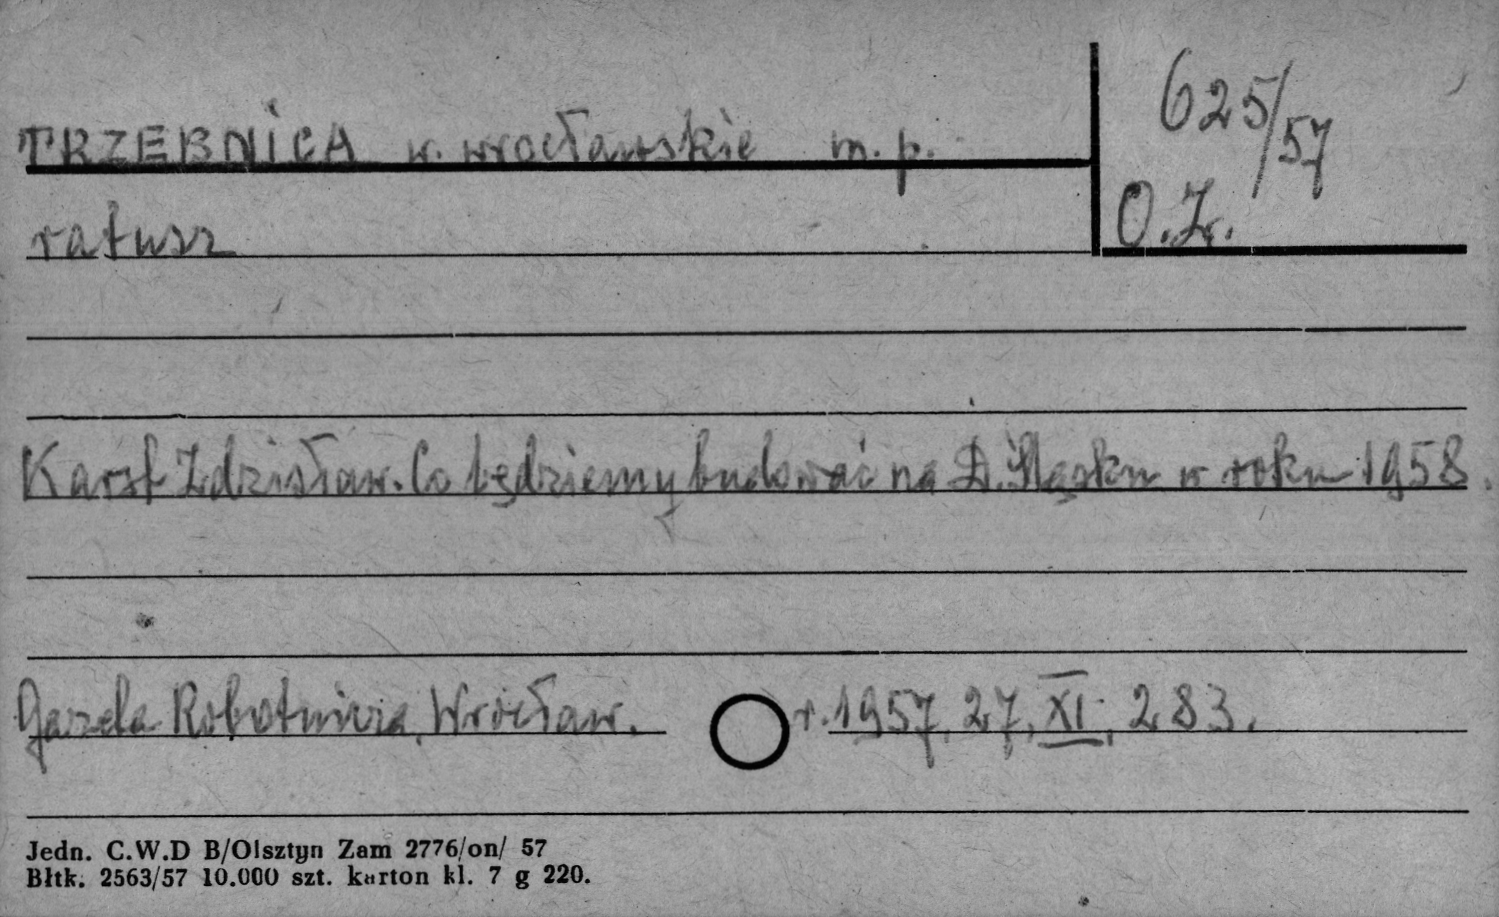 TRZEBNICA w. wrocławskie m. p.
625/57
O. Zr.
ratusz
Karst Zdzisław. Co będziemy budować na D. Śląsku w roku 1958.
Gazeta Robotnicza, Wrocław. r. 1957, 27, XI, 283.
Jedn. C.W.D B/Olsztyn Zam 2776/on/ 57
Błtk. 2563/57 10.000 szt. karton kl. 7 g 220.